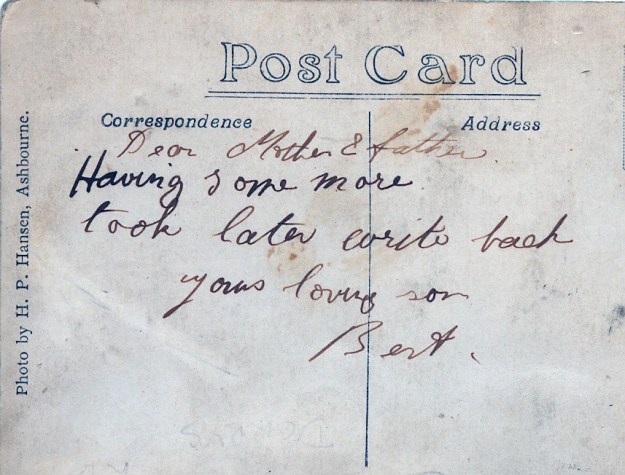 Post Card
Correspondence
Address
Dear Mother & father
Having some more
took later write back
yours loving son
Bert.
Photo by H. P. Hansen, Ashbourne.